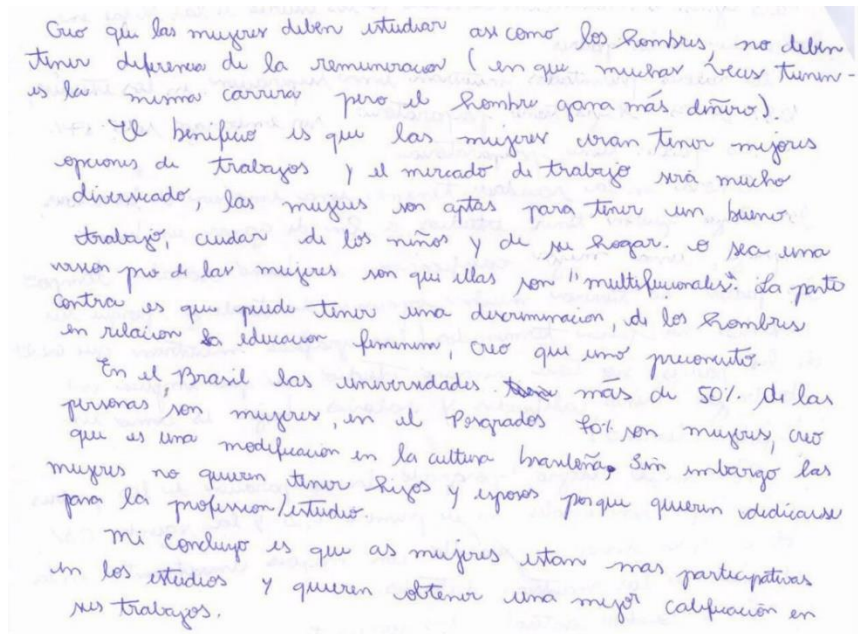 Creo que las mujeres deben estudiar asi como los hombres, no deben
tener diferencia de la remuneracion (en que muchas veces tienen-
es la misma carrera pero el hombre gana más dinero).
El benificio es que las mujeres iran tener mejores
opciones de trabajos y el mercado de trabajo será mucho
diversicado, las mujeres son aptas para tener un bueno
trabajo, cuidar de los niños y de su hogar. o sea una
version pro de las mujeres son que ellas son "multifucionales". La parte
contra es que puede tener una discriminacion, de los hombres
en relacion la educacion feminim, creo que uno preconcito.
En el Brasil las universidades más de 50% de las
personas, son mujeres, en el Posgrados 70% son mujeres, creo
que es una modificación en la cultura brasileña, Sin embargo las
mujeres no quieren tener hijos y esposos porque quieren dedicarse
para la profession/estudio.
Mi concluyo es que as mujeres estan mas participativas
en los estudios y quieren obtener una mejor calificación en
sus trabajos.